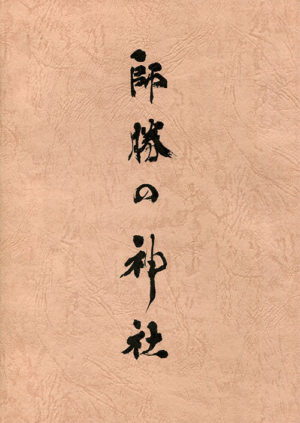 師勝の神社